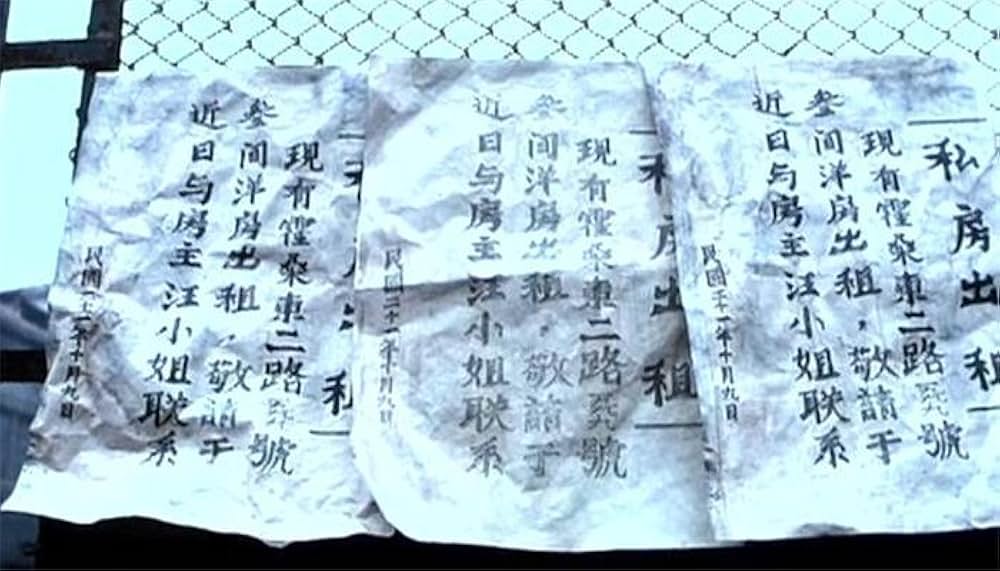 私房出租
現有桑車二路號
叁间洋房出租，敬請于
近日与房主汪小姐联系
民國二十二年十月九日
房出租
現有桑車二路號
叁间洋房出租，敬請于
近日与房主汪小姐联系
民國二十二年十月九日
現有桑車二路號
叁间洋房出租，敬請于
近日与房主汪小姐联系
民國二十二年十月九日